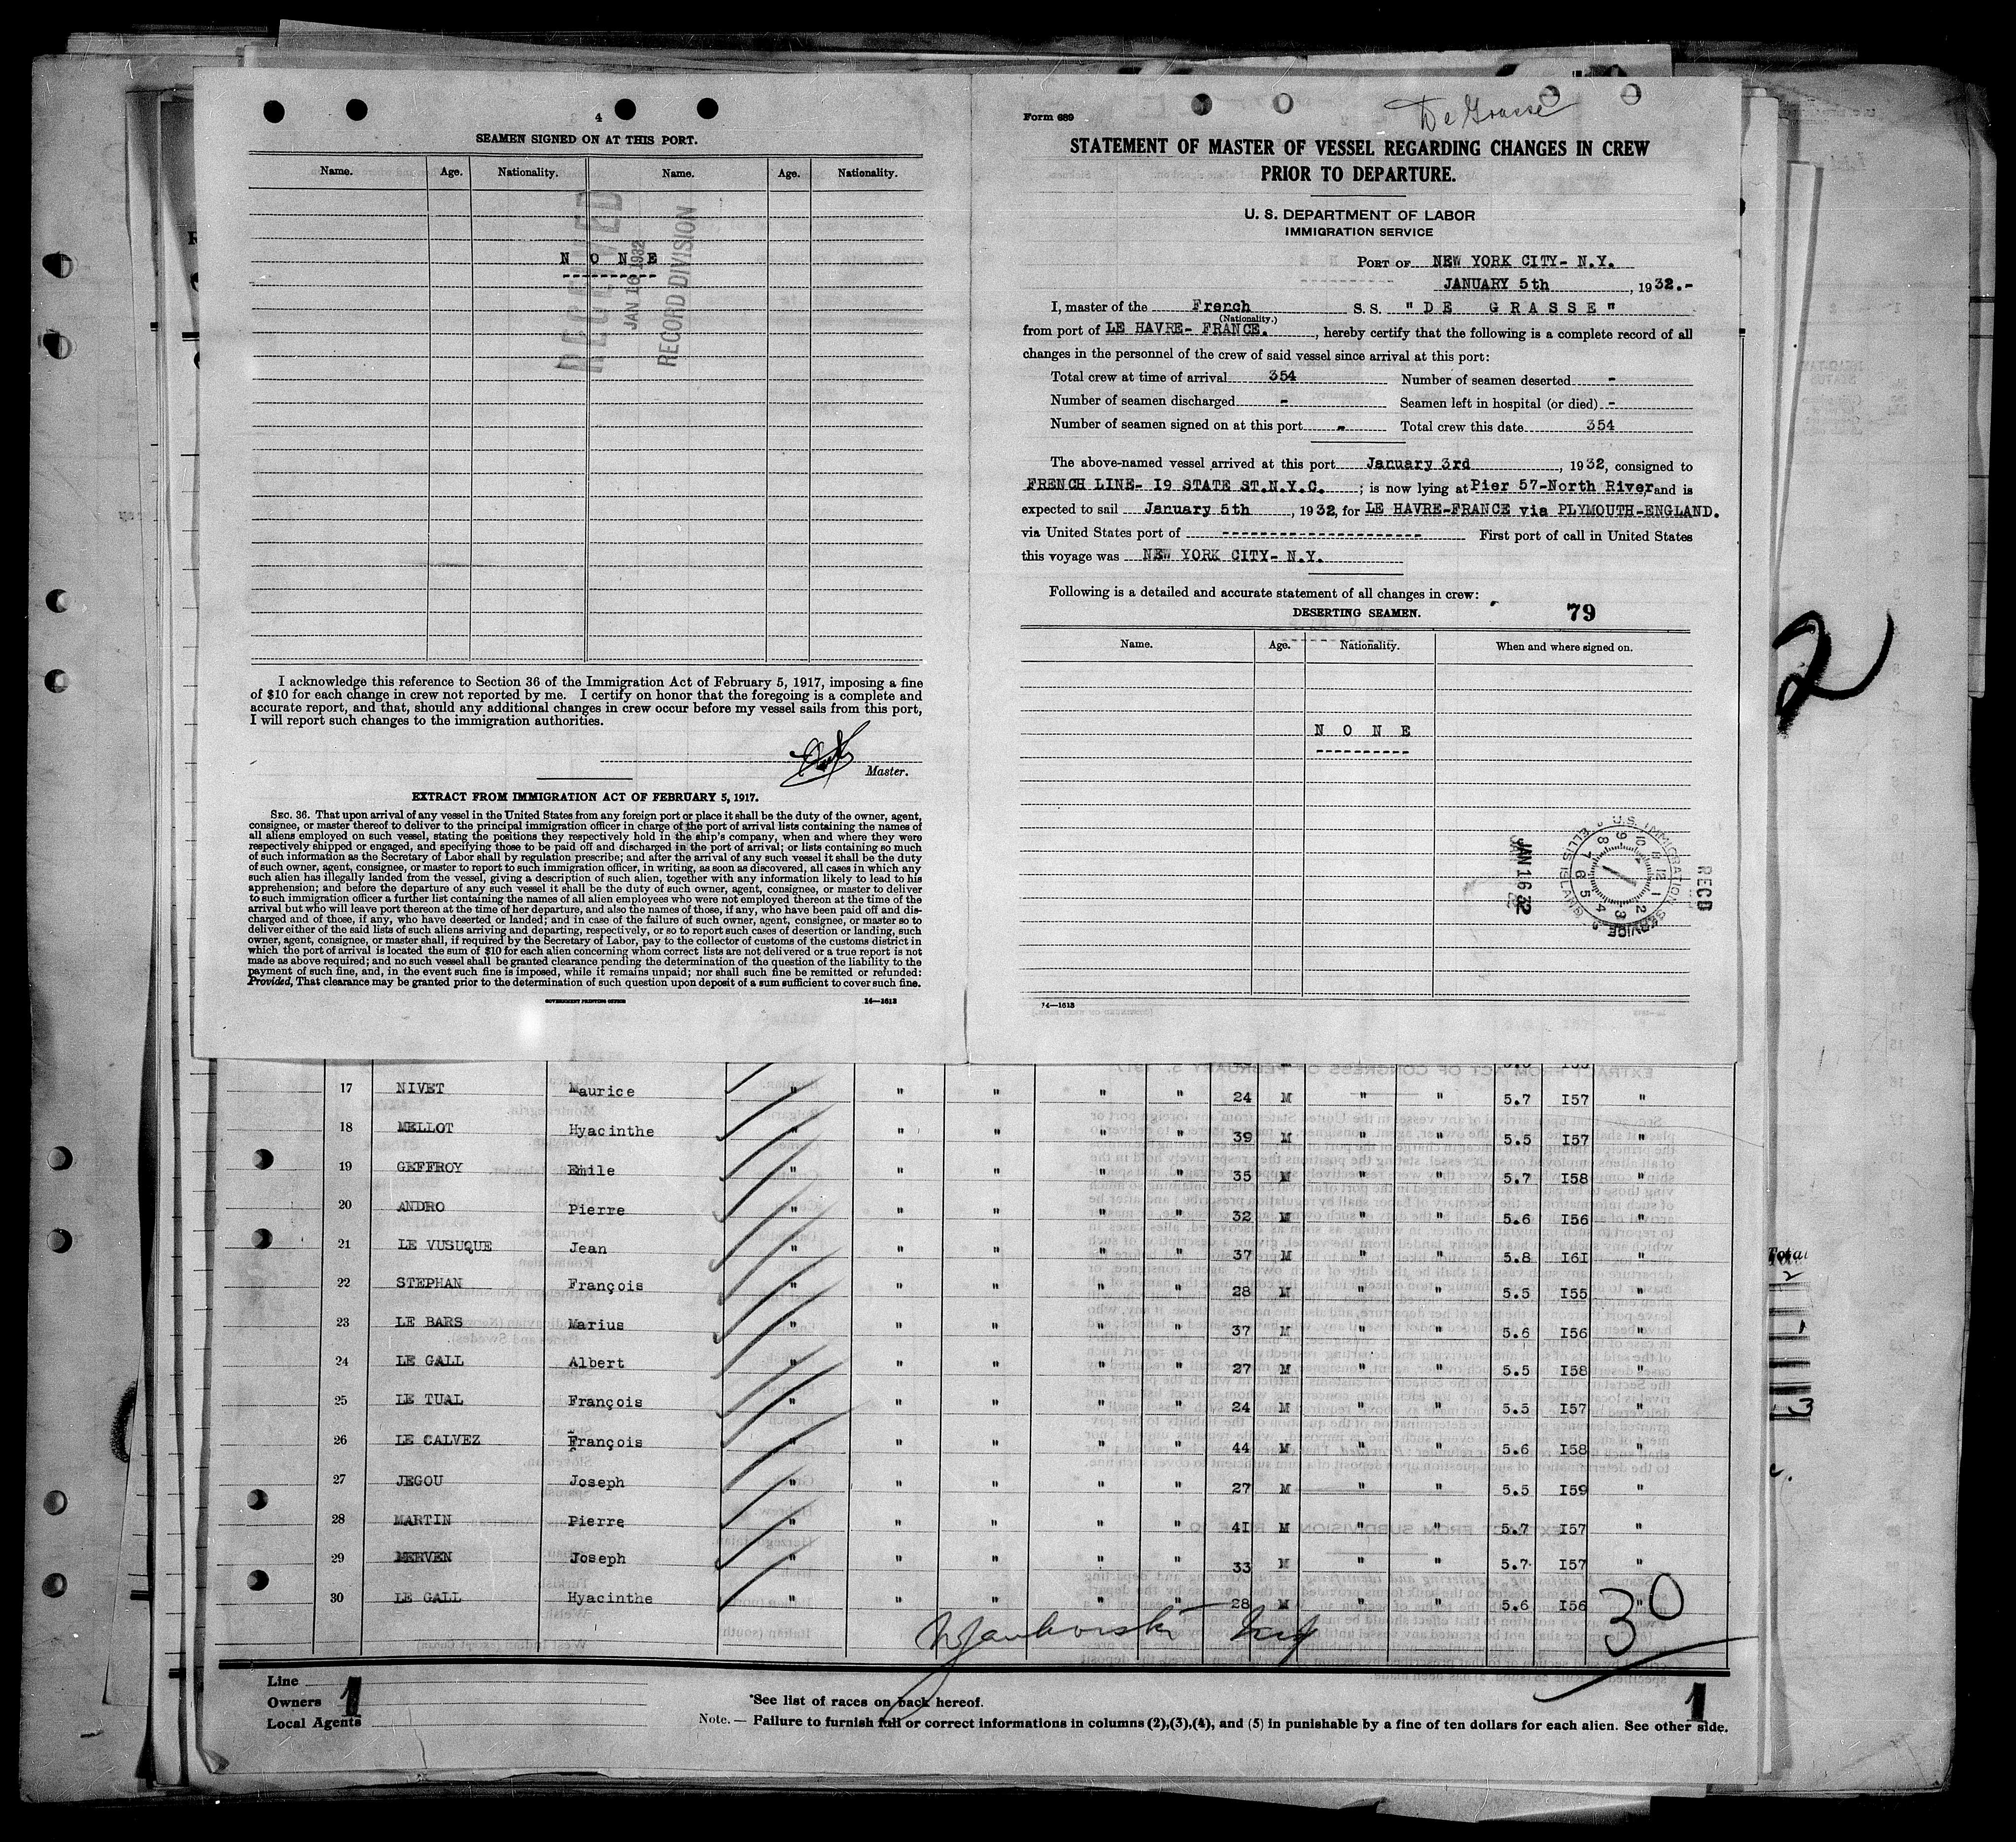 4
SEAMEN SIGNED ON AT THIS PORT.
Name. Age. Nationality. Name. Age. Nationality.
N O N E
RECEIVED
JAN 16 1932
RECORD DIVISION
I acknowledge this reference to Section 36 of the Immigration Act of February 5, 1917, imposing a fine
of $10 for each change in crew not reported by me. I certify on honor that the foregoing is a complete and
accurate report, and that, should any additional changes in crew occur before my vessel sails from this port,
I will report such changes to the immigration authorities.
Master.
EXTRACT FROM IMMIGRATION ACT OF FEBRUARY 5, 1917.
SEC. 36. That upon arrival of any vessel in the United States from any foreign port or place it shall be the duty of the owner, agent,
consignee, or master thereof to deliver to the principal immigration officer in charge of the port of arrival lists containing the names of
all aliens employed on such vessel, stating the positions they respectively hold in the ship's company, when and where they were
respectively shipped or engaged, and specifying those to be paid off and discharged in the port of arrival; or lists containing so much
of such information as the Secretary of Labor shall by regulation prescribe; and after the arrival of any such vessel it shall be the duty
of such owner, agent, consignee, or master to report to such immigration officer, in writing, as soon as discovered, all cases in which any
such alien has illegally landed from the vessel, giving a description of such alien, together with any information likely to lead to his
apprehension; and before the departure of any such vessel it shall be the duty of such owner, agent, consignee, or master to deliver
to such immigration officer a further list containing the names of all alien employees who were not employed thereon at the time of the
arrival but who will leave port thereon at the time of her departure, and also the names of those, if any, who have been paid off and dis-
charged and of those, if any, who have deserted or landed; and in case of the failure of such owner, agent, consignee, or master so to
deliver either of the said lists of such aliens arriving and departing, respectively, or so to report such cases of desertion or landing, such
owner, agent, consignee, or master shall, if required by the Secretary of Labor, pay to the collector of customs of the customs district in
which the port of arrival is located the sum of $10 for each alien concerning whom correct lists are not delivered or a true report is not
made as above required; and no such vessel shall be granted clearance pending the determination of the question of the liability to the
payment of such fine, and, in the event such fine is imposed, while it remains unpaid; nor shall such fine be remitted or refunded:
Provided, That clearance may be granted prior to the determination of such question upon deposit of a sum sufficient to cover such fine.
GOVERNMENT PRINTING OFFICE 14—1613
De Grasse
Form 689
STATEMENT OF MASTER OF VESSEL REGARDING CHANGES IN CREW
PRIOR TO DEPARTURE.
U. S. DEPARTMENT OF LABOR
IMMIGRATION SERVICE
PORT OF NEW YORK CITY- N.Y.
JANUARY 5th, 1932.-
I, master of the French S.S. "DE GRASSE"
(Nationality.)
from port of LE HAVRE- FRANCE., hereby certify that the following is a complete record of all
changes in the personnel of the crew of said vessel since arrival at this port:
Total crew at time of arrival 354 Number of seamen deserted -
Number of seamen discharged - Seamen left in hospital (or died) -
Number of seamen signed on at this port - Total crew this date 354
The above-named vessel arrived at this port January 3rd, 1932, consigned to
FRENCH LINE- I9 STATE ST.N.Y.C. ; is now lying at Pier 57-North River, and is
expected to sail January 5th, 1932, for LE HAVRE-FRANCE via PLYMOUTH-ENGLAND.
via United States port of -------------------- First port of call in United States
this voyage was NEW YORK CITY- N.Y.
Following is a detailed and accurate statement of all changes in crew:
DESERTING SEAMEN. 79
Name. Age. Nationality. When and where signed on.
N O N E
JAN 16 32
U.S. IMMIGRATION SERVICE ELLIS ISLAND
RECD
14—1613
2
17 NIVET Maurice " " " " " 24 M " " 5.7 I57 "
18 MELLOT Hyacinthe " " " " " 39 M " " 5.5 I57 "
19 GEFFROY Emile " " " " " 35 M " " 5.7 I58 "
20 ANDRO Pierre " " " " " 32 M " " 5.6 I56 "
21 LE VUSUQUE Jean " " " " " 37 M " " 5.8 I6I "
22 STEPHAN François " " " " " 28 M " " 5.5 I55 "
23 LE BARS Marius " " " " " 37 M " " 5.6 I56 "
24 LE GALL Albert " " " " " 27 M " " 5.5 I58 "
25 LE TUAL François " " " " " 24 M " " 5.5 I57 "
26 LE CALVEZ François " " " " " 44 M " " 5.6 I58 "
27 JEGOU Joseph " " " " " 27 M " " 5.5 I59 "
28 MARTIN Pierre " " " " " 4I M " " 5.7 I57 "
29 MERVEN Joseph " " " " " 33 M " " 5.7 I57 "
30 LE GALL Hyacinthe " " " " " 28 M " " 5.6 I56 "
30
Line
Owners 1
Local Agents
*See list of races on back hereof.
Note. — Failure to furnish full or correct informations in columns (2),(3),(4), and (5) in punishable by a fine of ten dollars for each alien. See other side.
1